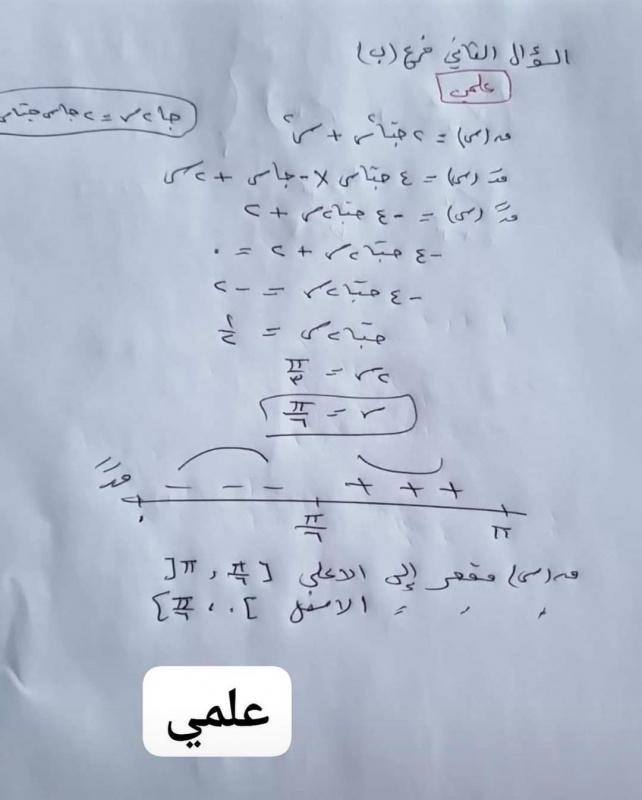 السؤال الثاني فرع (ب)
علمي
جا٢س = ٢جاس جتاس
ق(س) = ٢جتا٢س + س٢
قَ(س) = ٤ جتاس × -جاس + ٢س
قً(س) = -٤ جتا٢س + ٢
-٤ جتا٢س + ٢ = ٠
-٤ جتا٢س = -٢
جتا٢س = ١/٢
٢س = π/٣
س = π/٦
قً - - - + + +
٠ π/٦ π
ق(س) مقعر إلى الأعلى [π/٦ ، π[
" " " الاسفل ]٠ ، π/٦]
علمي